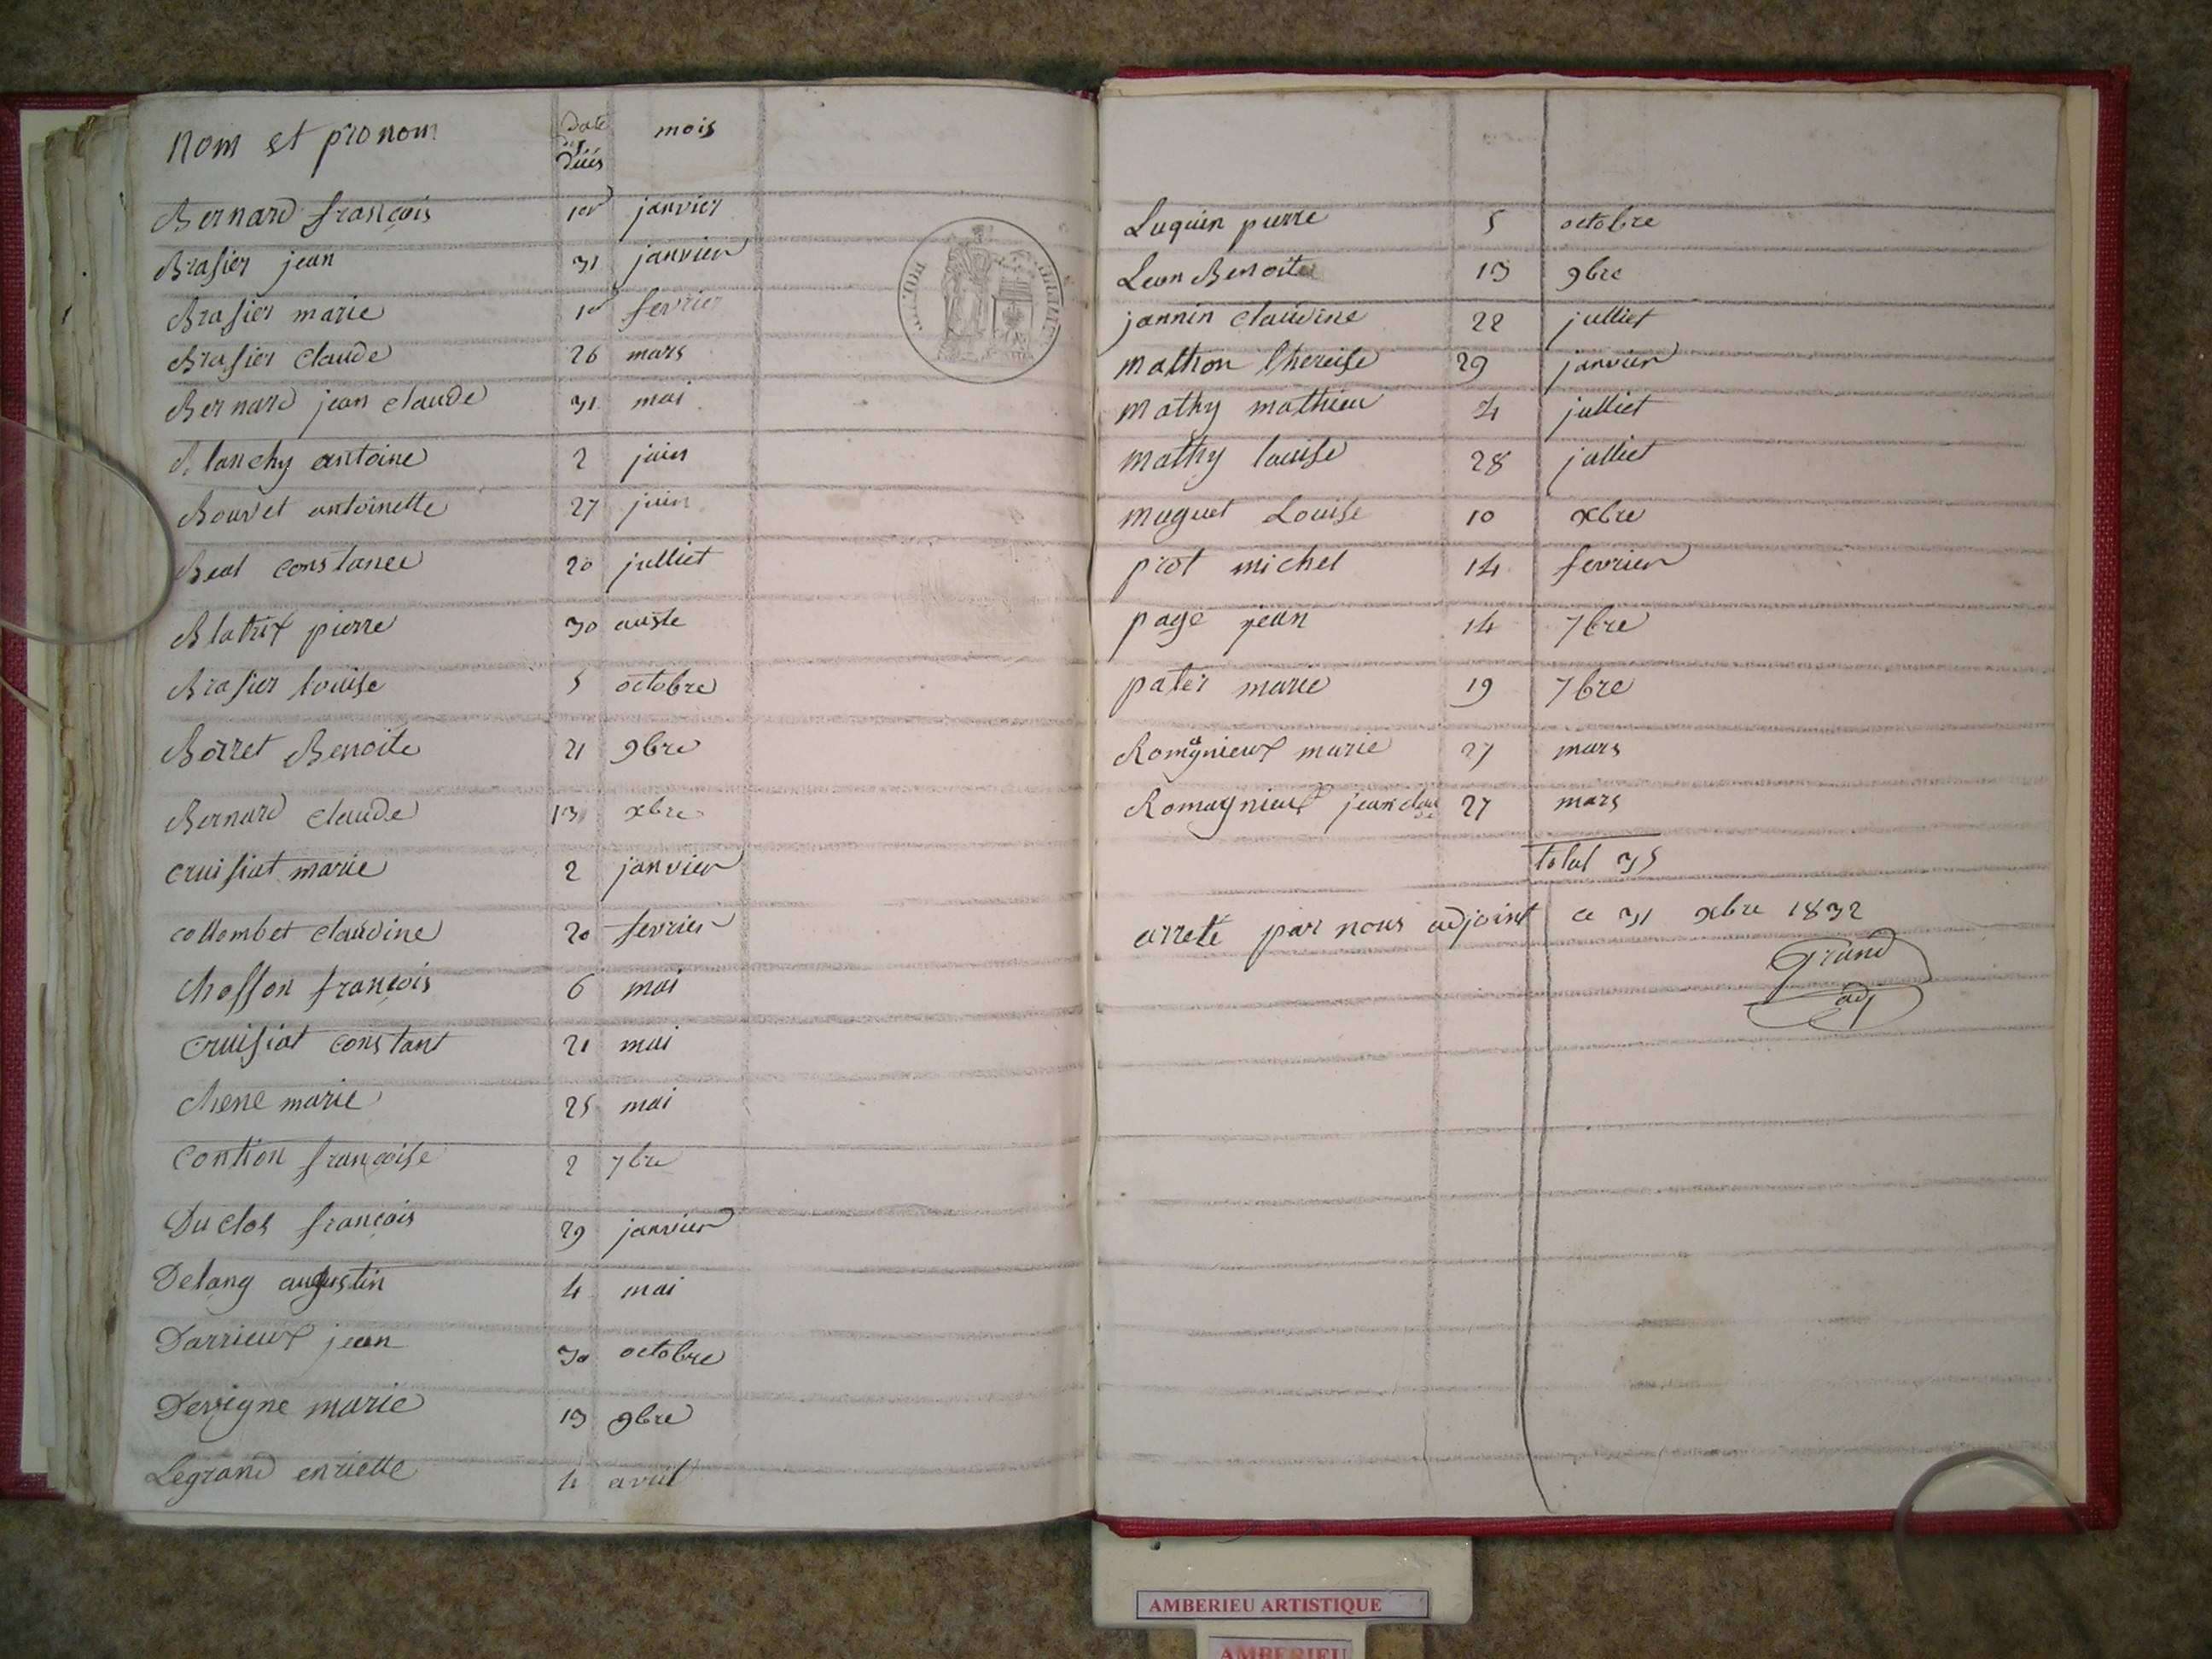 nom et pronom Date des Déces mois
Bernard françois 1er janvier
Brasier jean 31 janvier
Brasier marie 1er fevrier
Brasier Claude 26 mars
Bernard jean claude 31 mai
Blanchy antoine 2 juin
Bouvet antoinette 27 juin
Beat constance 20 julliet
Blatrix pierre 30 auste
Brasier louise 5 octobre
Borret Benoite 21 9bre
Bernard claude 13 xbre
cruisiat marie 2 janvier
collombet claudine 20 fevrier
Chosson françois 6 mai
Cruisiat constant 21 mai
Chene marie 25 mai
Contion françoise 2 7bre
Duclos françois 29 janvier
Delang augustin 4 mai
Darrieux jean 30 octobre
Devigne marie 13 9bre
Legrand enriette 4 avril
Luquin pierre 5 octobre
Leon Benoite 13 9bre
jannin claudine 22 julliet
mathon thereise 29 janvier
mathy mathieu 4 julliet
mathy louise 28 julliet
muguet Louise 10 xbre
piot michel 14 fevrier
page jean 14 7bre
pater marie 19 7bre
Romagnieux marie 27 mars
Romagnieux jean claude 27 mars
total 35
arreté par nous adjoint ce 31 xbre 1832
Grand
adj
AMBERIEU ARTISTIQUE
AMBERIEU